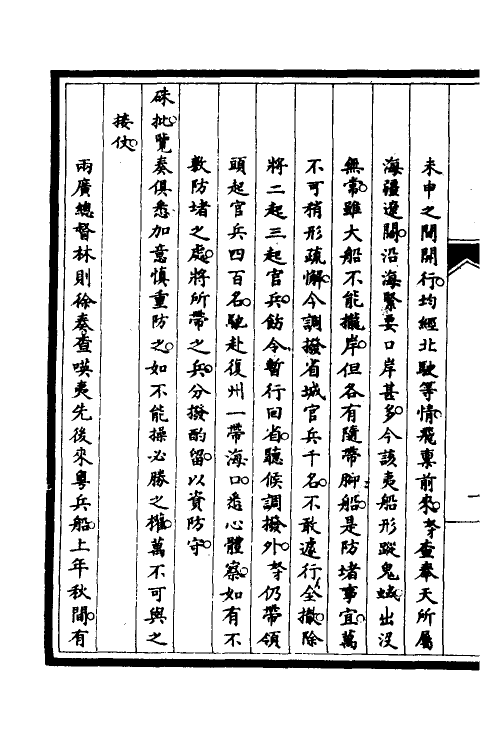 未申之間開行。均經北駛等情。飛稟前來。芧查奉天所屬
海疆遼闊。沿海緊要口岸甚多。今該夷船形蹤鬼蜮。出沒
無常。雖大船不能攏岸。但各有隨帶脚船。是防堵事宜。萬
不可稍形疏懈。今調撥省城官兵千名。不敢遽行全撤。除
將二起三起官兵。飭令暫行回省。聽候調撥外。芧仍帶領
頭起官兵四百名。馳赴復州一帶海口。悉心體察。如有不
敷防堵之處。將所帶之兵。分撥酌留。以資防守。
硃批。覽奏俱悉。加意慎重防之。如不能操必勝之權。萬不可與之
接仗。
兩廣總督林則徐奏。查㗸夷先後來粵兵船。上年秋間。有
一